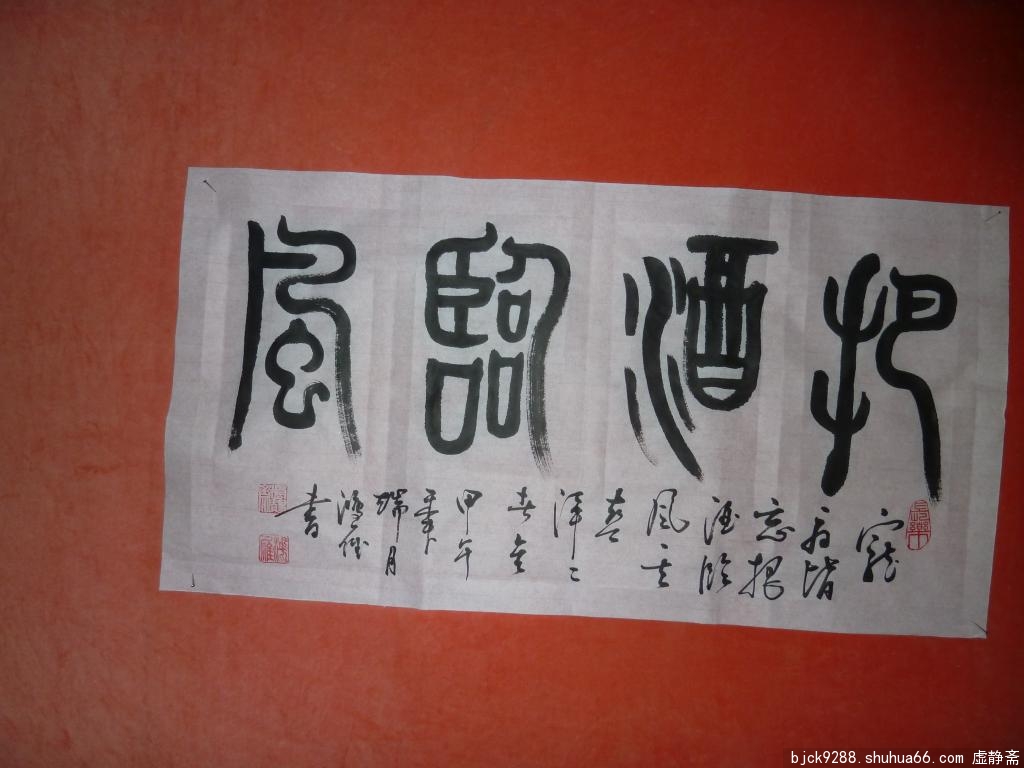 把酒臨風
寵
辱皆
忘把
酒临
风其
喜
洋〻
者矣
甲午
年
瑞月
鸿
书
長樂
bjck9288.shuhua66.com 虚静斋